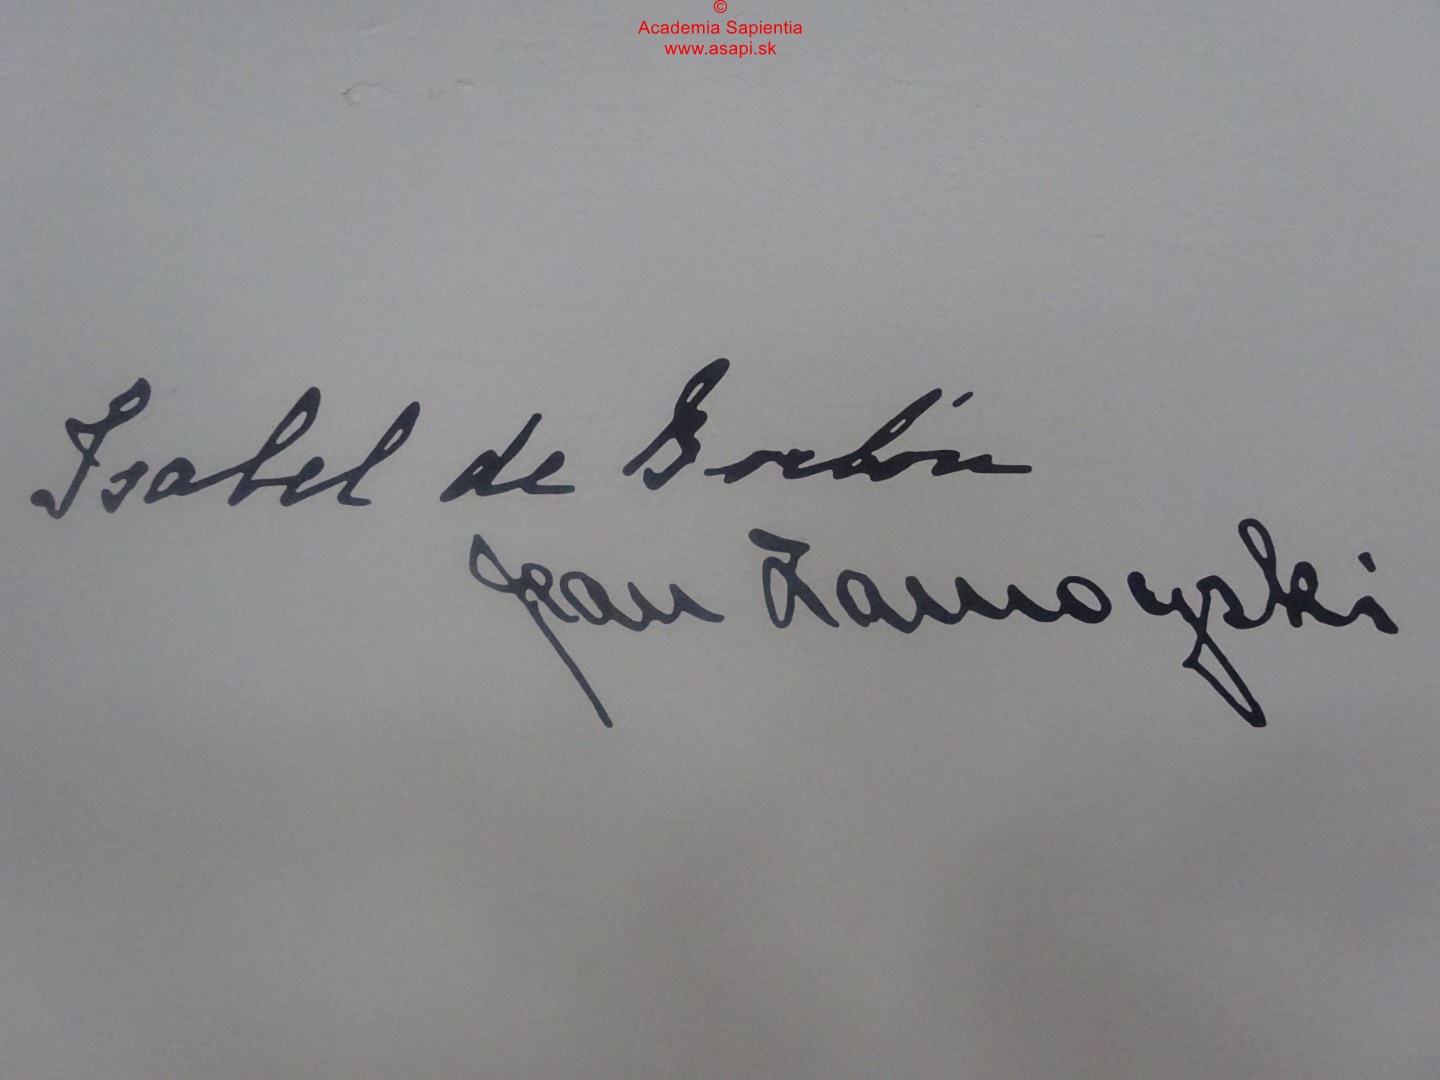 ©
Academia Sapientia
www.asapi.sk
Isabel de Borbón
Jean Zamoyski